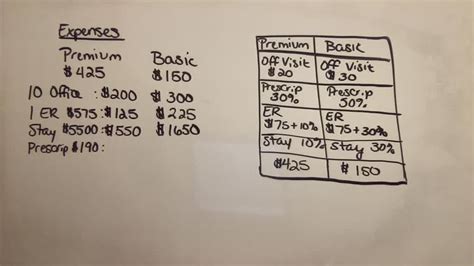 Expenses
Premium Basic
$425 $150
10 Office : $200 $300
1 ER $575: $125 $225
Stay $5500: $550 $1650
Prescrip $190:
Premium Basic
Off Visit Off Visit
$20 $30
Prescrip Prescrip
30% 50%
ER ER
$75+10% $75+30%
Stay 10% Stay 30%
$425 $150